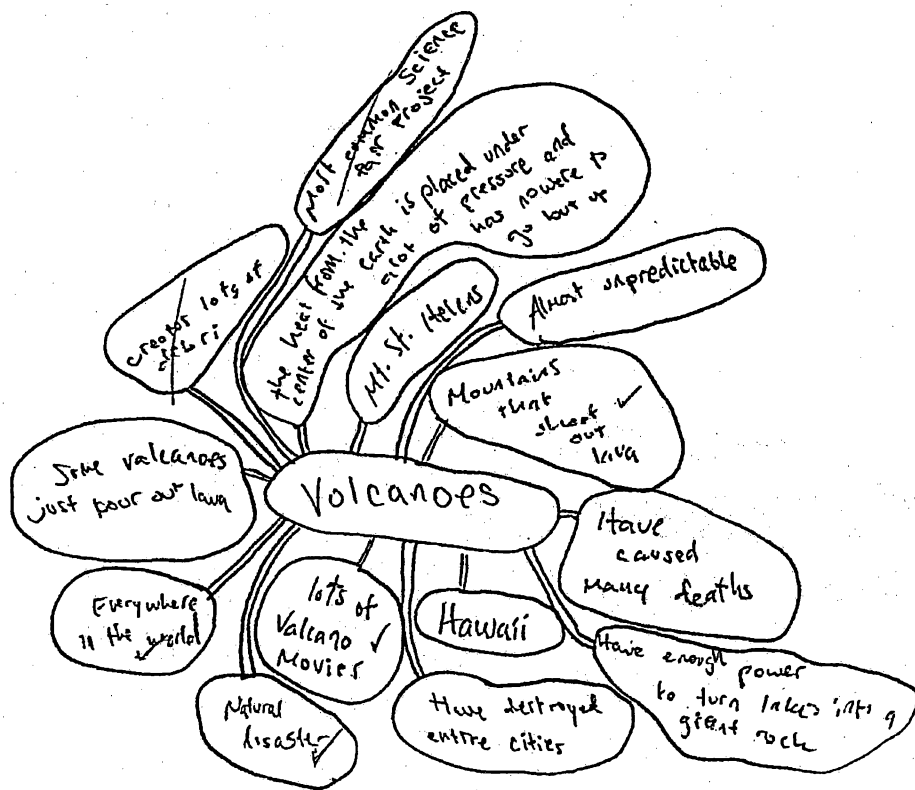 Most common Science
fair Project
the heat from the
center of the earth is placed under
alot of pressure and
has nowere to
go but up
creates lots of
Mt. St. Helens
Almost unpredictable
Mountains
that
shoot
out
lava
Some valcanoes
just pour out lava
Volcanoes
Have
caused
many deaths
Everywhere
in the world
lots of
Valcano
Movies
Hawaii
Have enough power
to turn lakes into a
giant rock
Natural
disaster
Have destroyed
entire cities